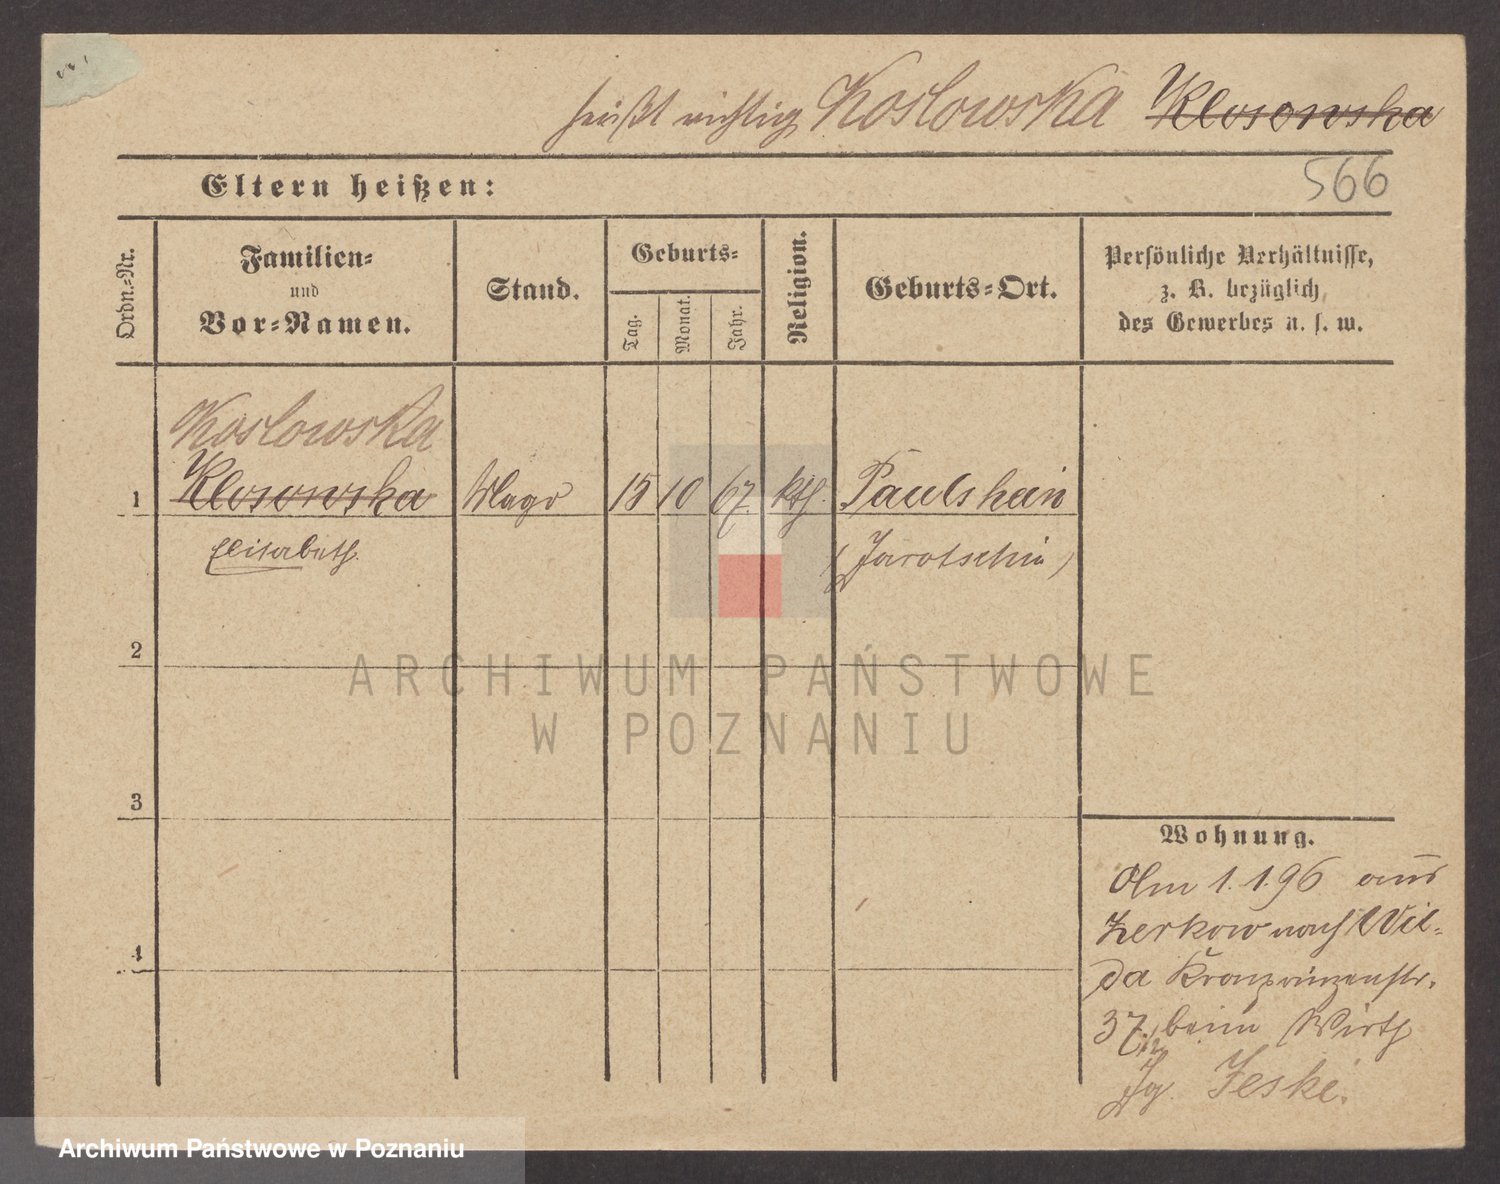 heißt richtig Koslowska Klosowska
566
Eltern heißen:
Ordn.-Nr.
Familien-
und
Vor-Namen.
Stand.
Geburts-
Tag.
Monat.
Jahr.
Religion.
Geburts-Ort.
Persönliche Verhältnisse,
z. B. bezüglich
des Gewerbes u. s. w.
Koslowska
1 Klosowska Magd 15 10 67 kth. Paulshain
Elisabeth (Jarotschin)
2
ARCHIWUM PAŃSTWOWE
W POZNANIU
3
4
Wohnung.
Am 1.1.96 aus
Zerkow nach Wil-
da Kronprinzenstr.
37, beim Wirth
Jeske.
Archiwum Państwowe w Poznaniu